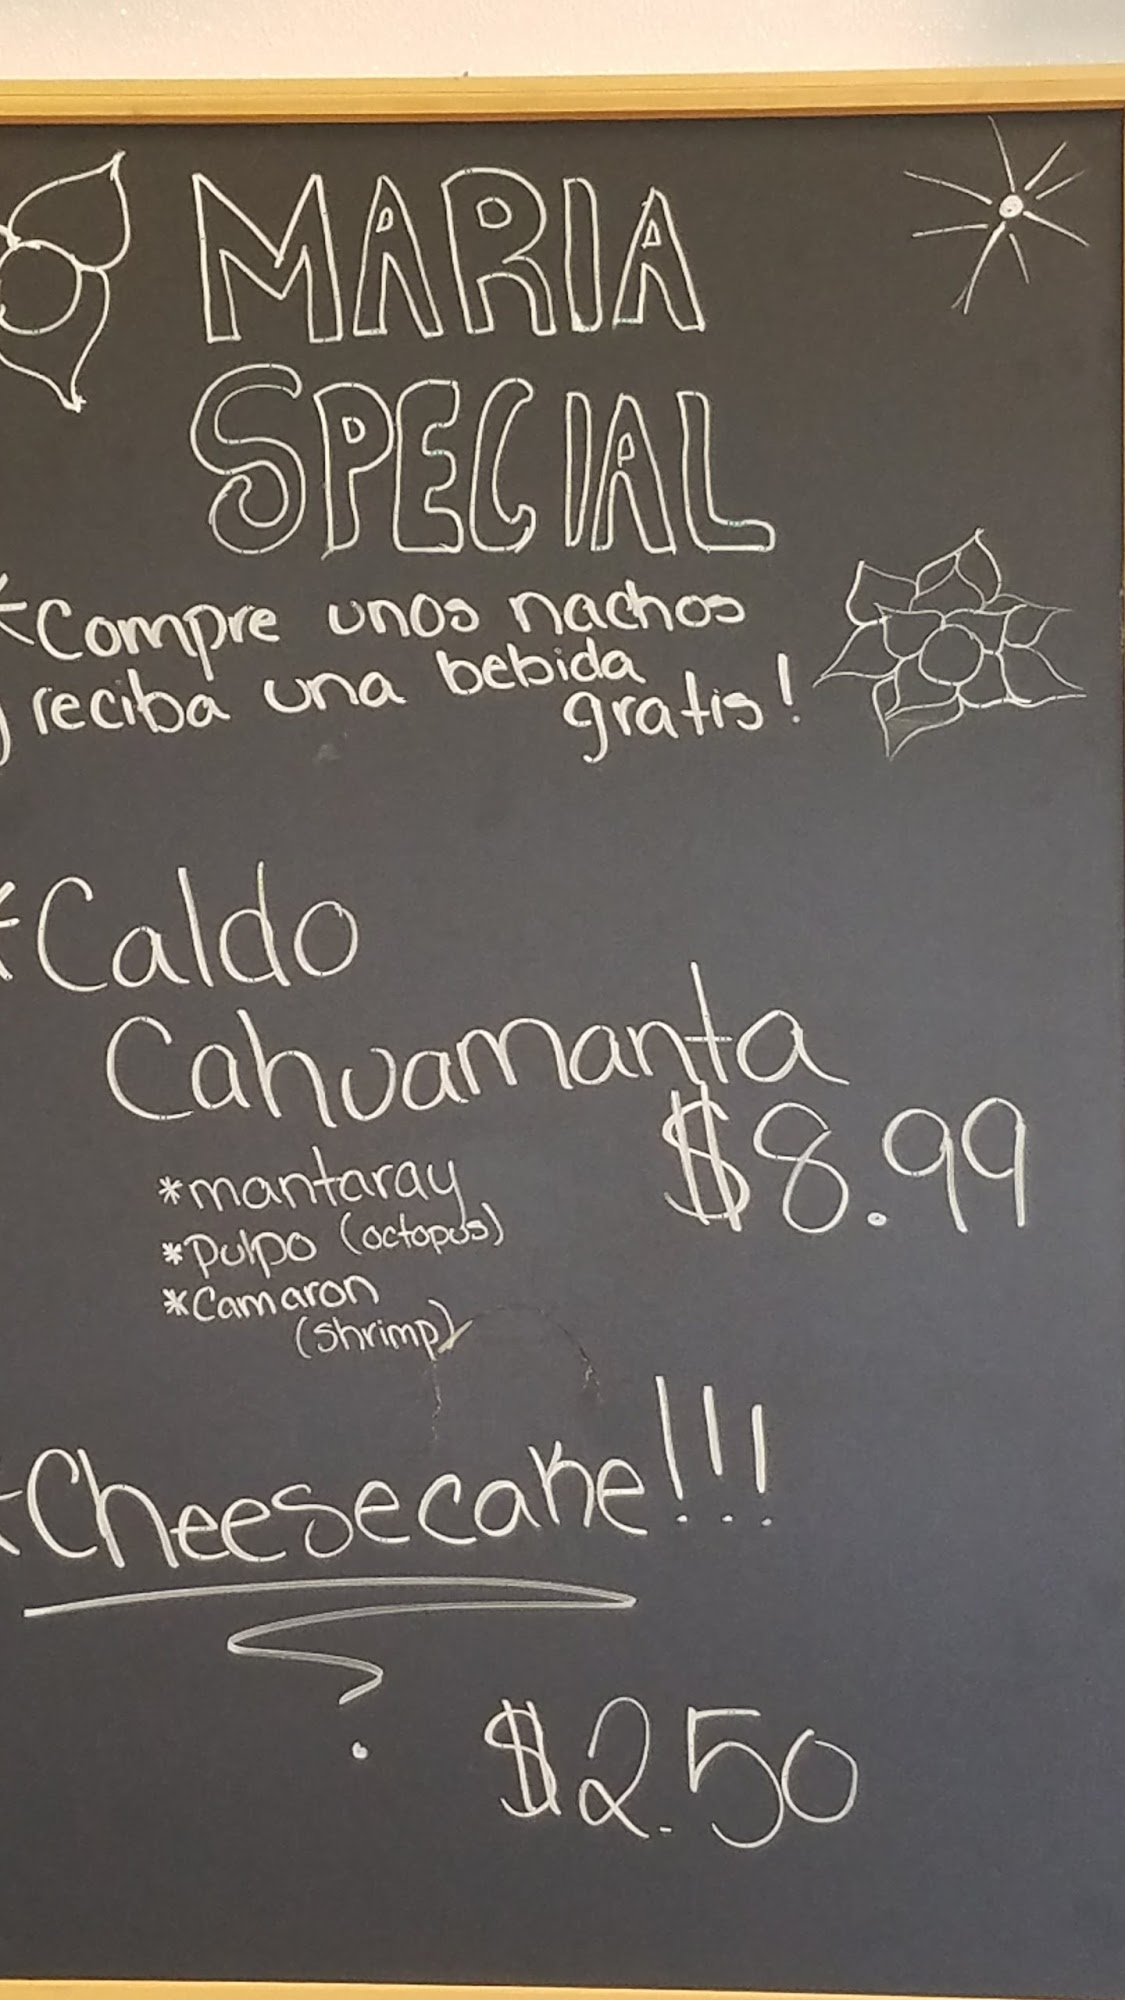 MARIA
SPECIAL
*Compre unos nachos
y reciba una bebida
gratis!
*Caldo
Cahuamanta
$8.99
*mantaray
*Pulpo (octopus)
*Camaron
(shrimp)
*Cheesecake!!!
$2.50